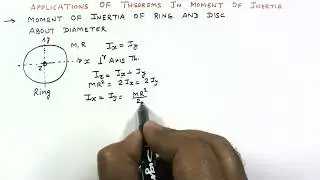 APPLICATIONS OF THEOREMS IN MOMENT OF INERTIA
→ MOMENT OF INERTIA OF RING AND DISC
ABOUT DIAMETER
y
M, R
Ix = Iy
x
⊥r Axis Th.
z
Iz = Ix + Iy
MR² = 2Ix = 2Iy
Ix = Iy = MR²/2
Ring